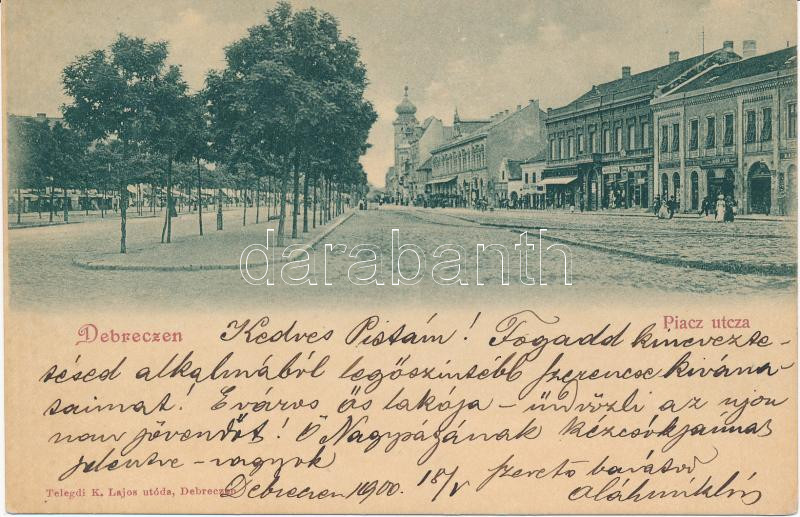 darabanth
Debreczen
Piacz utcza
Kedves Pistám! Fogadd kinevezte-
tésed alkalmából legőszintébb szerencse kivána-
taimat! E város ős lakója - üdvözli az ujon
jövendőt! Ő Nagyságának kézcsókjaimat
jelentve - vagyok
szerető barátod
Debreczen 1900. 18/V
Telegdi K. Lajos utóda, Debreczen